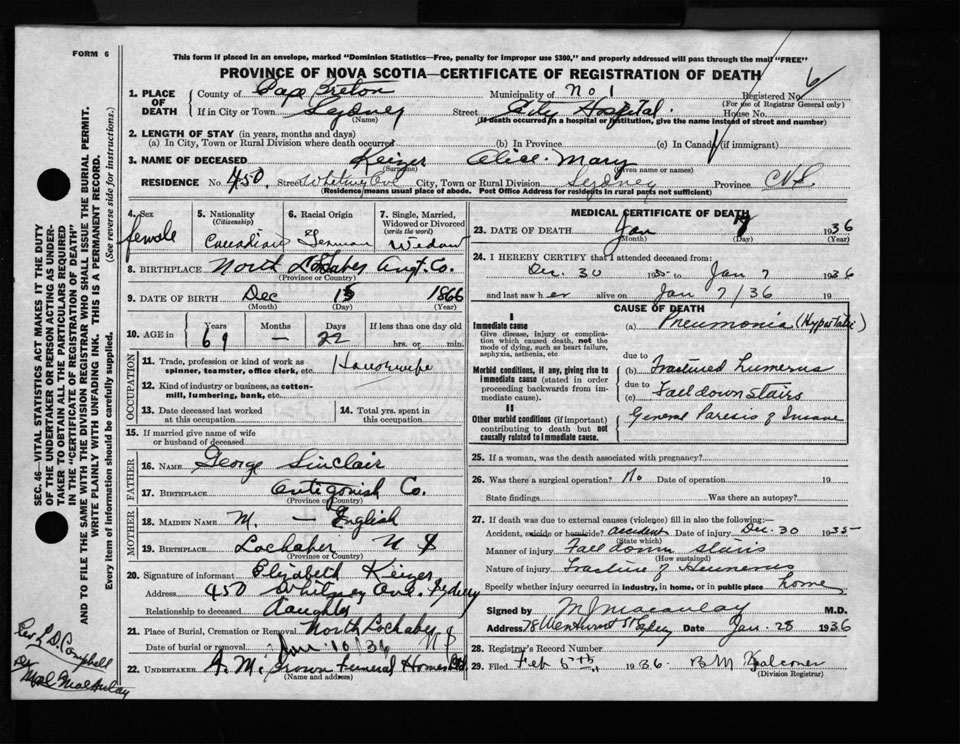 FORM 6
This form if placed in an envelope, marked "Dominion Statistics—Free, penalty for improper use $300," and properly addressed will pass through the mail "FREE"
PROVINCE OF NOVA SCOTIA—CERTIFICATE OF REGISTRATION OF DEATH
1. PLACE OF DEATH
County of Cape Breton Municipality of No 1 Registered No. 6
(For use of Registrar General only)
If in City or Town Sydney Street City Hospital. House No.
(Name) (If death occurred in a hospital or institution, give the name instead of street and number)
2. LENGTH OF STAY (in years, months and days)
(a) In City, Town or Rural Division where death occurred (b) In Province (c) In Canada (if immigrant)
3. NAME OF DECEASED Keizer Alice Mary
(Surname) (Given name or names)
RESIDENCE No. 450 Street Whitney Ave City, Town or Rural Division Sydney Province N.S.
(Residence means usual place of abode. Post Office Address for residents in rural parts not sufficient)
4. Sex
female
5. Nationality
(Citizenship)
Canadian
6. Racial Origin
German
7. Single, Married, Widowed or Divorced
(write the word)
Widow
8. BIRTHPLACE North Lochaber Angt. Co.
(Province or Country)
9. DATE OF BIRTH Dec 15 1866
(Month) (Day) (Year)
10. AGE in Years Months Days If less than one day old
69 — 22 hrs. or min.
OCCUPATION
11. Trade, profession or kind of work as spinner, teamster, office clerk, etc. Housewife
12. Kind of industry or business, as cotton-mill, lumbering, bank, etc.
13. Date deceased last worked at this occupation
14. Total yrs. spent in this occupation
15. If married give name of wife or husband of deceased
FATHER
16. NAME George Sinclair
17. BIRTHPLACE Antigonish Co.
(Province or Country)
MOTHER
18. MAIDEN NAME M. — English
19. BIRTHPLACE Lochaber N S
(Province or Country)
20. Signature of informant Elizabeth Keizer
Address 450 Whitney Ave. Sydney
Relationship to deceased daughter
21. Place of Burial, Cremation or Removal North Lochaber N S
Date of burial or removal Jan 10/36
22. UNDERTAKER A. M. Brown Funeral Homes Ltd
(Name and address)
MEDICAL CERTIFICATE OF DEATH
23. DATE OF DEATH Jan 7 1936
(Month) (Day) (Year)
24. I HEREBY CERTIFY that I attended deceased from:
Dec. 30 1935 to Jan 7 1936
and last saw her alive on Jan 7/36 19
CAUSE OF DEATH
I
Immediate cause
Give disease, injury or complication which caused death, not the mode of dying, such as heart failure, asphyxia, asthenia, etc.
(a) Pneumonia (Hypostatic)
due to
Morbid conditions, if any, giving rise to immediate cause (stated in order proceeding backwards from immediate cause).
(b) Fractured humerus
due to
(c) Fall down stairs
II
Other morbid conditions (if important) contributing to death but not causally related to immediate cause.
General Paresis of Insane
25. If a woman, was the death associated with pregnancy?
26. Was there a surgical operation? No Date of operation 19
State findings Was there an autopsy?
27. If death was due to external causes (violence) fill in also the following:—
Accident, suicide or homicide? accident Date of injury Dec. 30 1935
(State which)
Manner of injury Fall down stairs
(How sustained)
Nature of injury Fracture of Humerus
Specify whether injury occurred in industry, in home, or in public place home
Signed by M J Macaulay M.D.
Address 78 Wentworth St Sydney Date Jan. 28 1936
28. Registrar's Record Number
29. Filed Feb 5th 1936 B M Falconer
(Division Registrar)
SEC. 46—VITAL STATISTICS ACT MAKES IT THE DUTY
OF THE UNDERTAKER OR PERSON ACTING AS UNDER-
TAKER TO OBTAIN ALL THE PARTICULARS REQUIRED
IN THE "CERTIFICATE OF REGISTRATION OF DEATH"
AND TO FILE THE SAME WITH THE DIVISION REGISTRAR WHO SHALL ISSUE THE BURIAL PERMIT.
WRITE PLAINLY WITH UNFADING INK. THIS IS A PERMANENT RECORD.
Every item of information should be carefully supplied. (See reverse side for instructions.)
Rev. D. Campbell
Dr
MacAulay